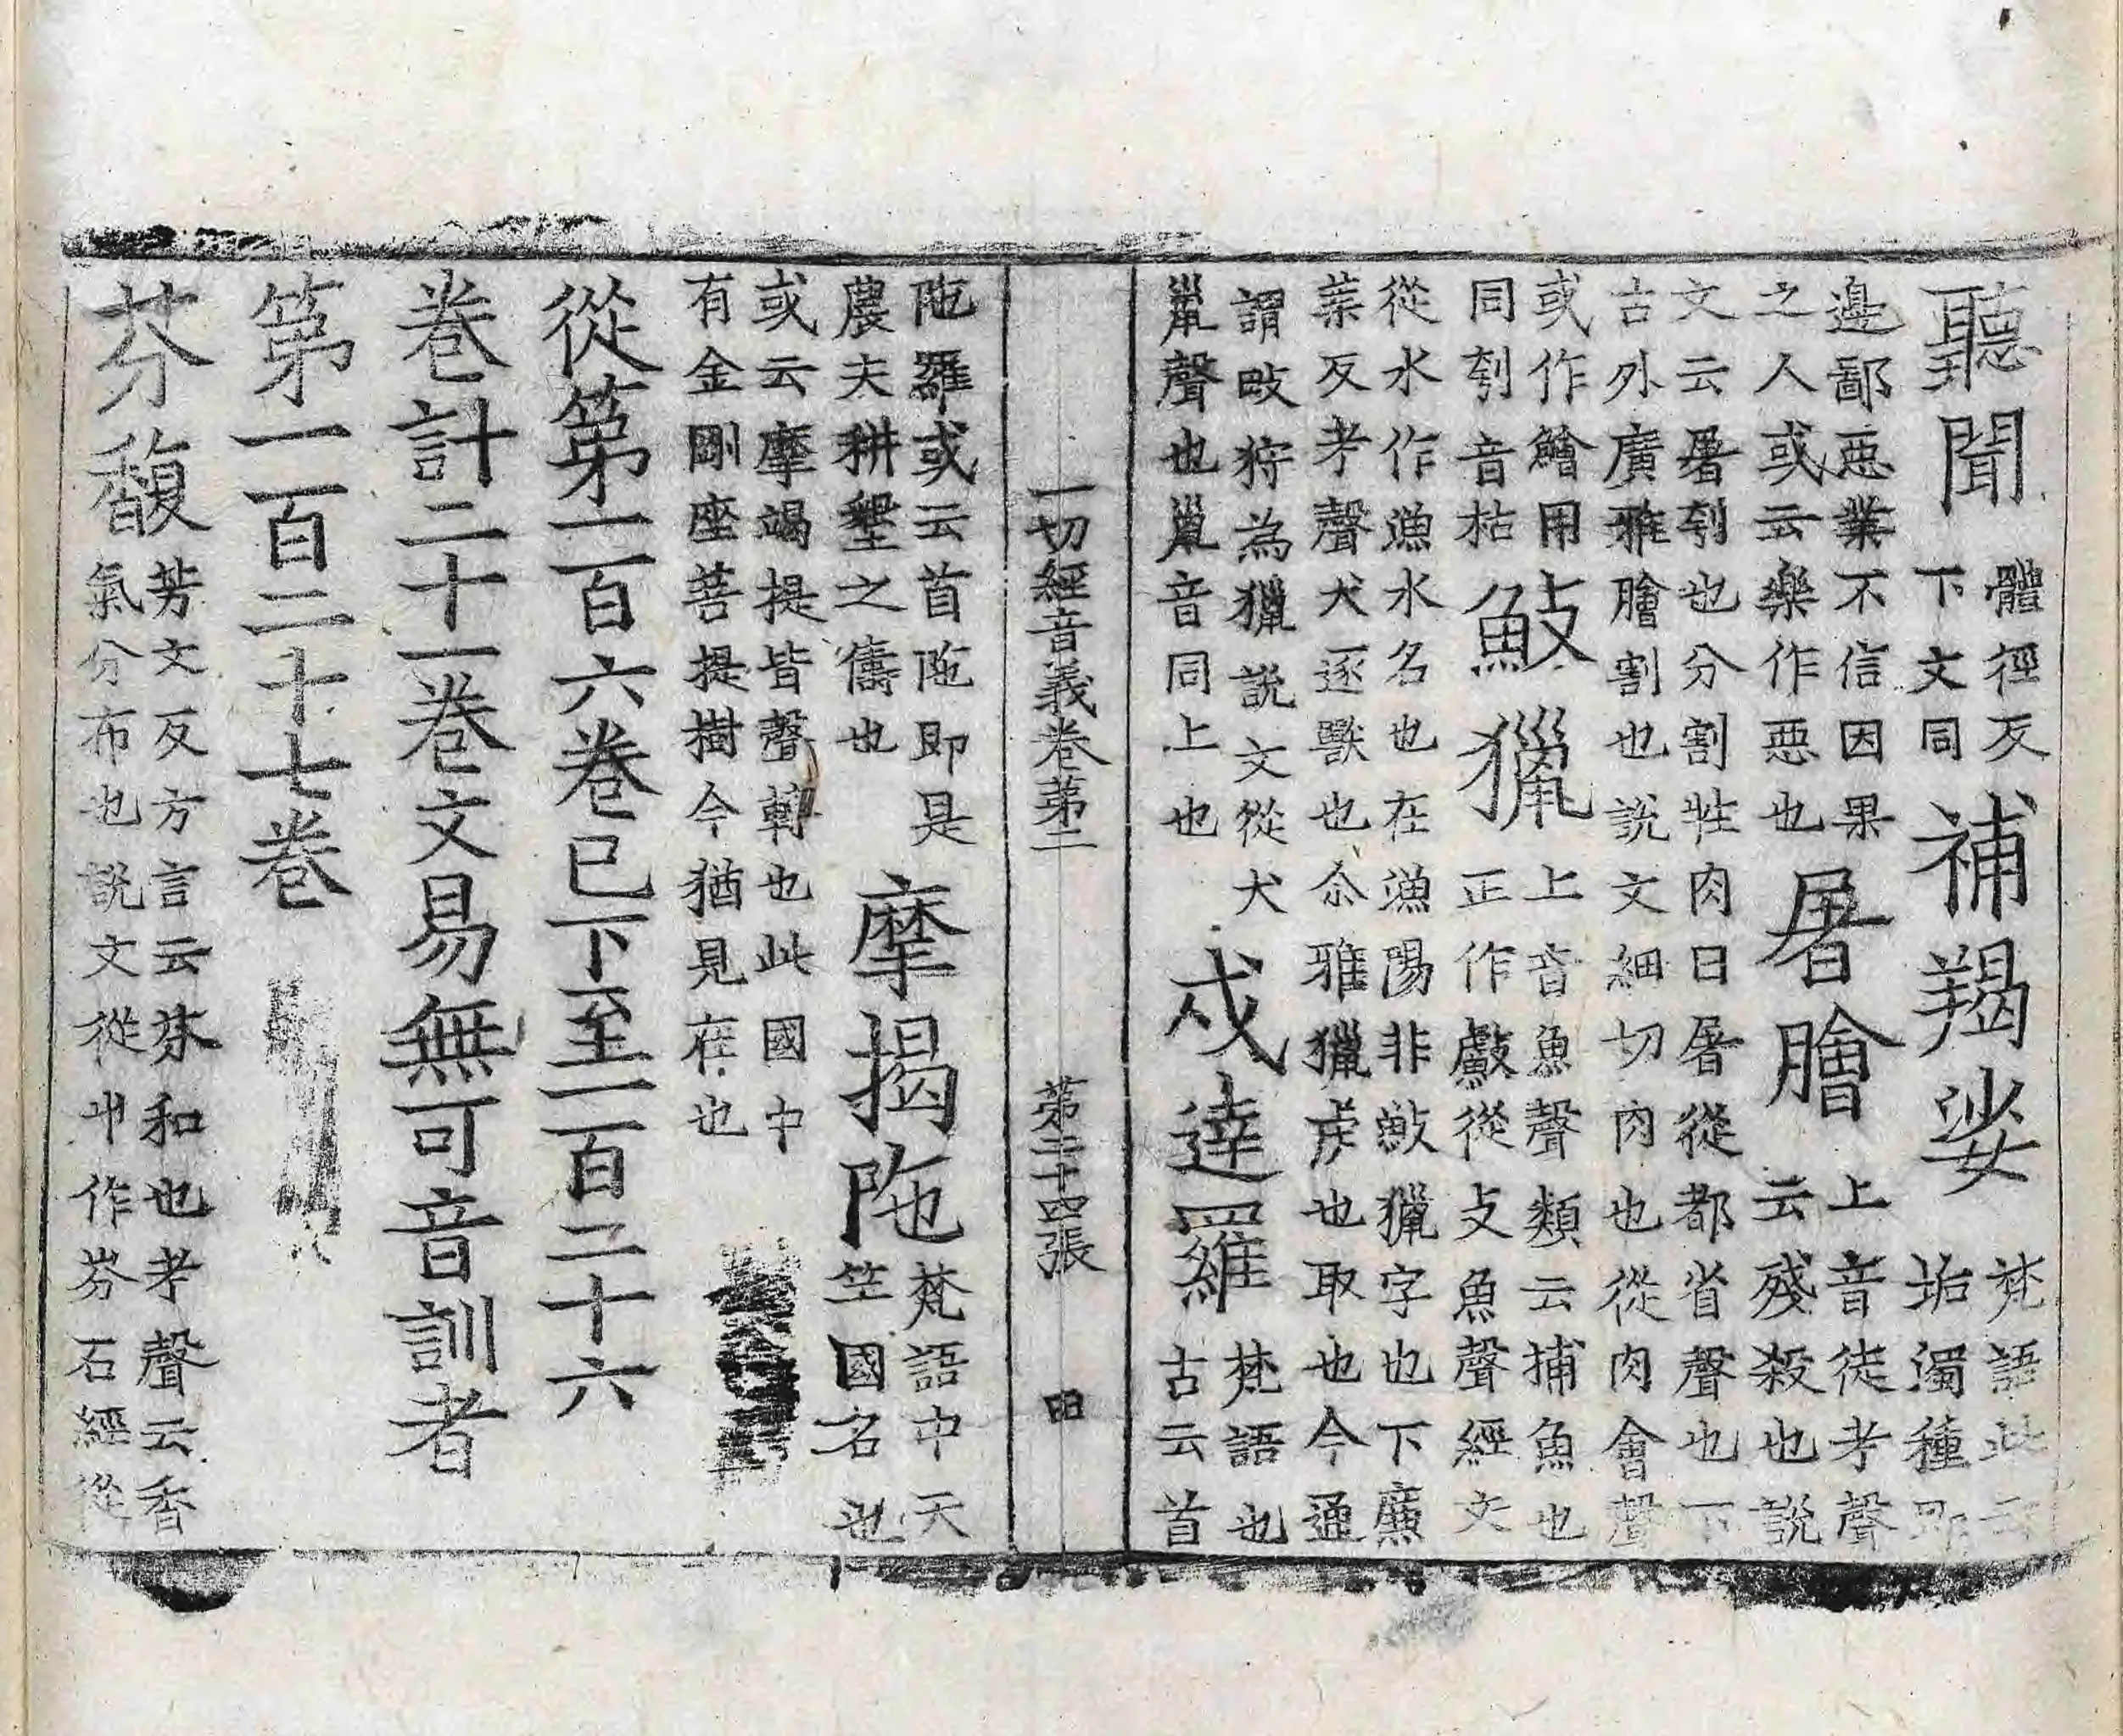 聽聞 體徑反下文同 補羯娑 梵語此云垢濁種即
邊鄙惡業不信因果之人或云樂作惡也 屠膾 上音徒考聲云殘殺也說
文云屠刳也分割牲肉曰屠從都省聲也下古外廣雅膾割也說文細切肉也從肉會聲
或作鱠用同刳音枯 䱷獵 上音魚聲類云捕魚也正作𢿣從攴魚聲經文
從水作漁水名也在漁陽非䱷獵字也下廉葉反考聲犬逐獸也尒雅獵虐也取也今通
謂畋狩為獵說文從犬巤聲也巤音同上也 戍達羅 梵語也古云首
一切經音義卷第二 第二十四張 田
陁羅或云首陁即是農夫耕墾之儔也 摩揭陁 梵語中天竺國名也
或云摩竭提皆聲轉也此國中有金剛座菩提樹今猶見在也
從第一百六卷已下至一百二十六
卷計二十一卷文易無可音訓者
第一百二十七卷
芬馥 芳文反方言云芬和也考聲云香氣分布也說文從屮作芬石經從